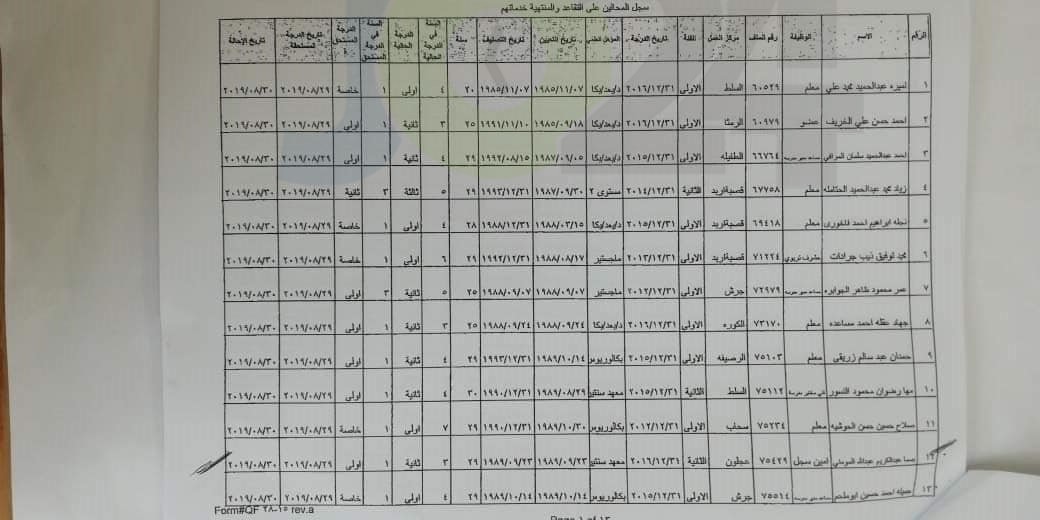 سجل المحالين على التقاعد والمنتهية خدماتهم
الرقم الاسم الوظيفة رقم الملف مركز العمل الفئة تاريخ الدرجة المؤهل العلمي تاريخ التعيين تاريخ التصنيف سنة السنة في الدرجة الحالية الدرجة الحالية السنة في الدرجة المستحق الدرجة المستحق تاريخ الدرجة المستحقة تاريخ الإحالة
١ اميره عبدالحميد محمد علي معلم ٦٠٥٢٩ السلط الاولى ٢٠١٦/١٢/٣١ ١٩٨٥/١١/٠٧ ١٩٨٥/١١/٠٧ ٢٠ ٤ اولى ١ خاصة ٢٠١٩/٠٨/٢٩ ٢٠١٩/٠٨/٣٠
٢ احمد حسن علي الخريف عضو ٦٠٩٧٩ الرمثا الاولى ٢٠١٦/١٢/٣١ ١٩٨٥/٠٩/١٨ ١٩٩١/١١/١٠ ٢٥ ٣ ثانية ١ اولى ٢٠١٩/٠٨/٢٩ ٢٠١٩/٠٨/٣٠
٣ احمد عبدالحميد سلمان المرافي ٦٦٧٦٤ الطفيله الاولى ٢٠١٥/١٢/٣١ ١٩٨٧/٠٩/٠٥ ١٩٩٢/٠٨/١٥ ٢٩ ٤ ثانية ١ اولى ٢٠١٩/٠٨/٢٩ ٢٠١٩/٠٨/٣٠
٤ زياد محمد عبدالحميد الحتامله معلم ٦٧٧٥٨ قصبة اربد الثانية ٢٠١٤/١٢/٣١ مستوى ٢ ١٩٨٧/٠٩/٣٠ ١٩٩٣/١٢/٣١ ٢٩ ٥ ثالثة ٣ ثانية ٢٠١٩/٠٨/٢٩ ٢٠١٩/٠٨/٣٠
٥ نجله ابراهيم احمد فاخوري معلم ٦٩٤١٨ قصبة اربد الاولى ٢٠١٥/١٢/٣١ ١٩٨٨/٠٣/١٥ ١٩٨٨/١٢/٣١ ٢٨ ٤ اولى ١ خاصة ٢٠١٩/٠٨/٢٩ ٢٠١٩/٠٨/٣٠
٦ محمد توفيق ذيب جرادات مشرف تربوي ٧١٢٢٤ قصبة اربد الاولى ٢٠١٣/١٢/٣١ ماجستير ١٩٨٨/٠٨/١٧ ١٩٩٢/١٢/٣١ ٢٩ ٦ اولى ١ خاصة ٢٠١٩/٠٨/٢٩ ٢٠١٩/٠٨/٣٠
٧ عمر محمود ظاهر الجوابره ٧٢٩٧٩ جرش الاولى ٢٠١٢/١٢/٣١ ماجستير ١٩٨٨/٠٩/٠٧ ١٩٨٨/٠٩/٠٧ ٢٥ ٥ ثانية ٣ اولى ٢٠١٩/٠٨/٢٩ ٢٠١٩/٠٨/٣٠
٨ جهاد عقله احمد مساعده معلم ٧٣١٧٠ الكوره الاولى ٢٠١٦/١٢/٣١ ١٩٨٨/٠٩/٢٤ ١٩٨٨/٠٩/٢٤ ٢٥ ٣ ثانية ١ اولى ٢٠١٩/٠٨/٢٩ ٢٠١٩/٠٨/٣٠
٩ حمدان عبد سالم زريقي معلم ٧٥١٠٣ الرصيفه الاولى ٢٠١٥/١٢/٣١ بكالوريوس ١٩٨٩/١٠/١٤ ١٩٩٣/١٢/٣١ ٢٩ ٤ ثانية ١ اولى ٢٠١٩/٠٨/٢٩ ٢٠١٩/٠٨/٣٠
١٠ مها رضوان محمود النسور ٧٥١١٢ السلط الثانية ٢٠١٥/١٢/٣١ معهد سنتين ١٩٨٩/٠٨/٢٩ ١٩٩٠/١٢/٣١ ٣٠ ٤ ثانية ١ اولى ٢٠١٩/٠٨/٢٩ ٢٠١٩/٠٨/٣٠
١١ صلاح حسين حسن الحوشيه معلم ٧٥٢٣٤ سحاب الاولى ٢٠١٢/١٢/٣١ بكالوريوس ١٩٨٩/١٠/٣٠ ١٩٩٠/١٢/٣١ ٢٩ ٧ اولى ١ خاصة ٢٠١٩/٠٨/٢٩ ٢٠١٩/٠٨/٣٠
١٢ عبدالكريم عبدالله المومني امين سجل ٧٥٤٢٩ عجلون الثانية ٢٠١٦/١٢/٣١ معهد سنتين ١٩٨٩/٠٩/٢٣ ١٩٨٩/٠٩/٢٣ ٢٩ ٣ ثانية ١ اولى ٢٠١٩/٠٨/٢٩ ٢٠١٩/٠٨/٣٠
١٣ جميله احمد حسين ابوملحم ٧٥٥١٤ جرش الاولى ٢٠١٥/١٢/٣١ بكالوريوس ١٩٨٩/١٠/١٤ ١٩٨٩/١٠/١٤ ٢٩ ٤ اولى ١ خاصة ٢٠١٩/٠٨/٢٩ ٢٠١٩/٠٨/٣٠
Form#QF ٢٨-١٥ rev.a
Page ١ of ١٣